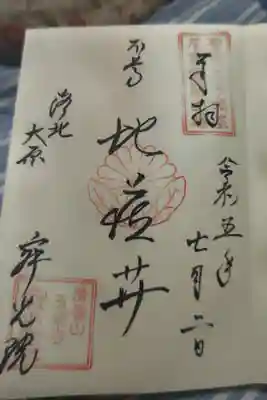 奉拝
令和五年七月二日
本尊
地蔵𦬇
洛北
大原
寂光院